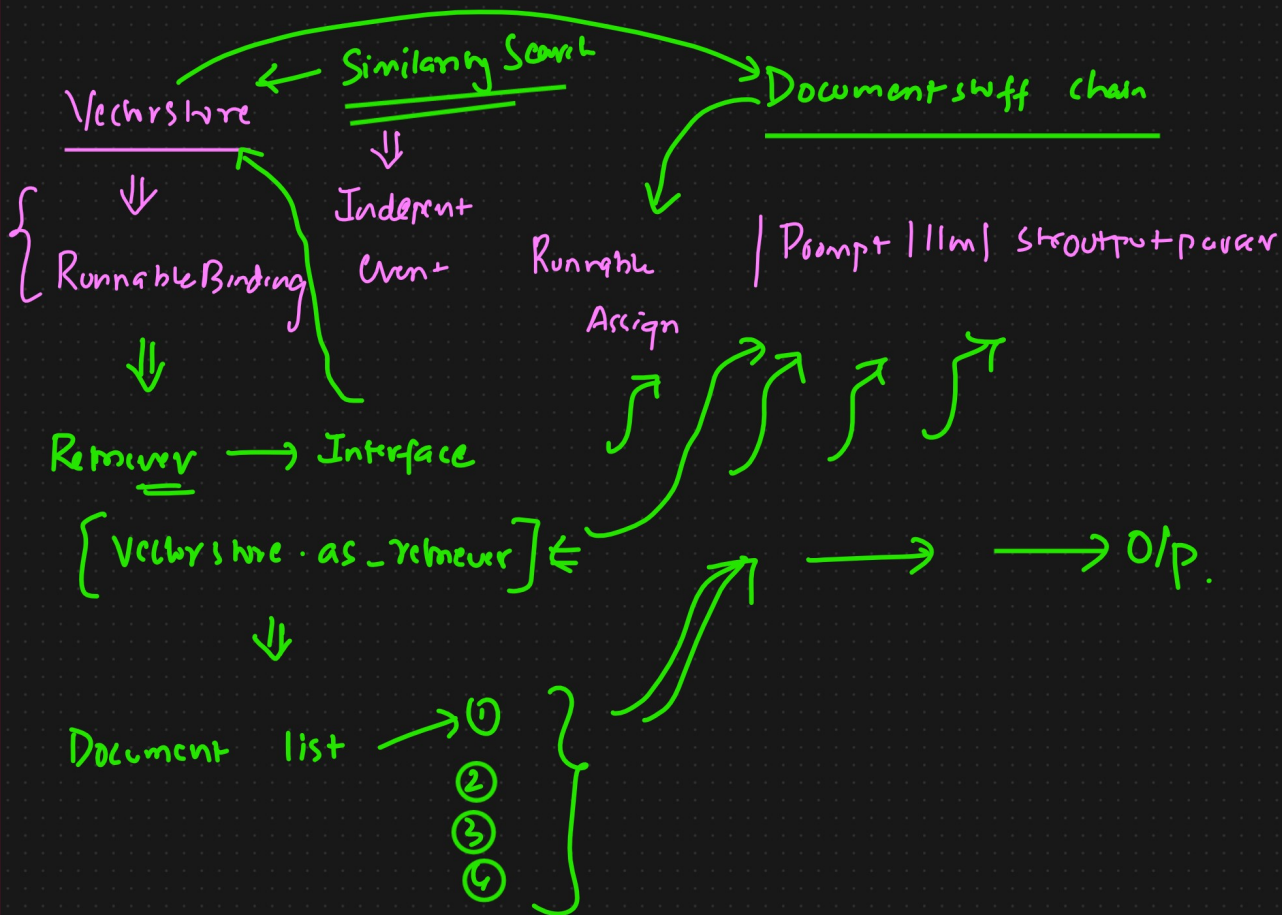 Similarity Search
Vectorstore
Document stuff chain
Indepent
event
RunnableBinding
Runnable
Assign
| Prompt | llm | stroutputparser
Retriever → Interface
[Vectorstore.as_retriever]
O/p.
Document list → 1
2
3
4